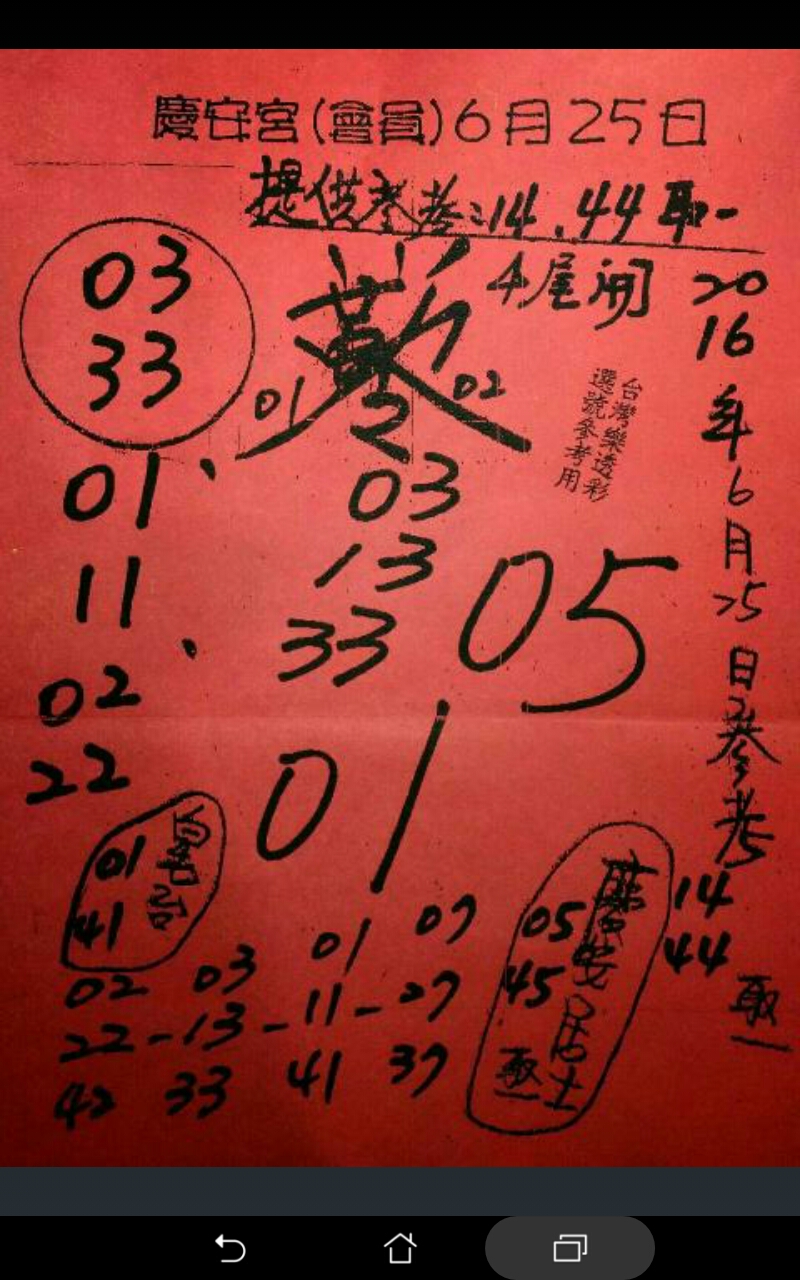 慶安宮(會員)6月25日
提供参考:14.44取一
4尾開
03
33
01
02
2
台灣樂透彩
選號參考用
2016年6月25日參考
14
44
取一
01、
11、
02
22
03
13
33
05
01
01
41
05
45
居士
取一
02 03 01 07
22-13-11-27
42 33 41 37